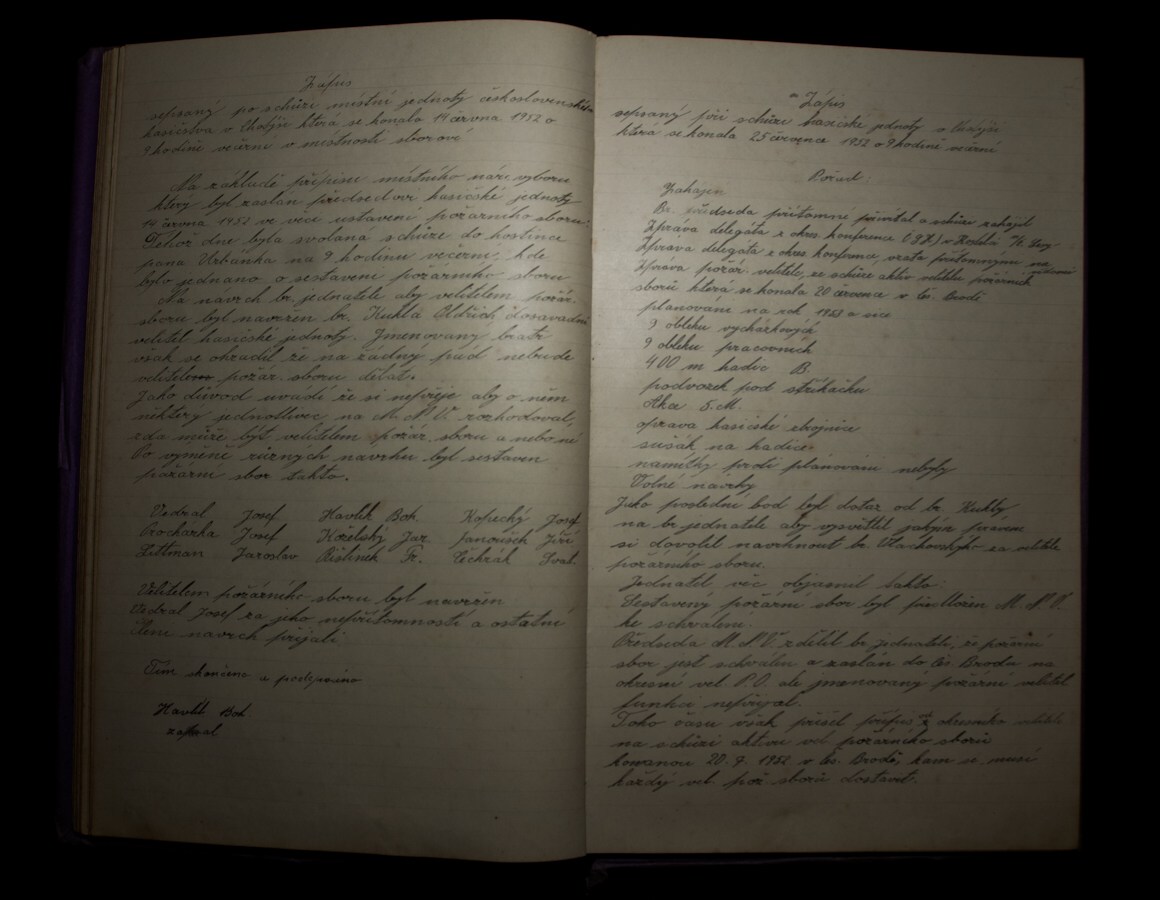 Zápis
sepsaný po schůzi místní jednoty československého
hasičstva v Chotýši která se konala 14 června 1952 o
9 hodině večerní v místnosti sborové
Na základě přípisu místního nár. výboru
který byl zaslán předsedovi hasičské jednoty
14 června 1952 ve věci ustavení požárního sboru.
Téhož dne byla svolaná schůze do hostince
pana Urbánka na 9 hodinu večerní, kde
bylo jednáno o sestavení požárního sboru
Na navrch br. jednatele aby velitelem požár.
sboru byl navržen br. Kukla Oldřich dosavadní
velitel hasičské jednoty. Jmenovaný bratr
však se ohradil že na žádný pád nebude
velitelem požár. sboru dělat.
Jako důvod uvádí že si nepřeje aby o něm
některý jednotlivec na M.N.V. rozhodoval,
zda může být velitelem požár. sboru a nebo ne
Po výměně různých navrhu byl sestaven
požární sbor takto.
Vedral Josef Havlík Boh. Kopecký Josef
Procházka Josef Kozelský Jar. Janoušek Jiří
Littman Jaroslav Fr. Svat.
Velitelem požárního sboru byl navržen
Vedral Josef za jeho nepřítomnosti a ostatní
členi navrch přijali.
Tím skončeno a podepsáno
Havlík Boh.
zapsal
Zápis
sepsaný při schůzi hasičské jednoty v Chotýši
která se konala 25 července 1952 o 9 hodině večerní
Pořad:
Zahájen
Br. předseda přítomné přivítal a schůzi zahájil
Zpráva delegáta z okres. konference
Zpráva delegáta z okres. konference, vzata přítomnými na
vědomí
Zpráva požár. velitele, ze schůze aktiv velitelů požárních
sborů která se konala 20 července v Čes. Brodě
plánování na rok 1953 a sice
9 obleku vycházkových
9 obleku pracovních
400 m hadic B.
podvozek pod stříkačku
Akce S.M.
oprava hasičské zbrojnice
sušák na hadice
namítky proti plánováni nebyly
Volné návrhy
Jako poslední bod byl dotaz od br. Kukly
na br. jednatele aby vysvětlil jakým právem
si dovolil navrhnout br. Vlachovského za velitele
požárního sboru.
Jednatel věc objasnil takto:
Sestavený požární sbor byl předložen M.N.V.
ke schválení.
Předseda M.N.V. sdělil br. jednateli, že požární
sbor jest schválen a zaslán do Čes. Brodu na
okresní vel. P.O. ale jmenovaný požární velitel
funkci nepřijal.
Toho času však přišel přípis z okresního velitele
na schůzi aktivu vel. požárního sborů
konanou 20.7. 1952 v Čes. Brodě, kam se musí
každý vel. pož. sborů dostavit.